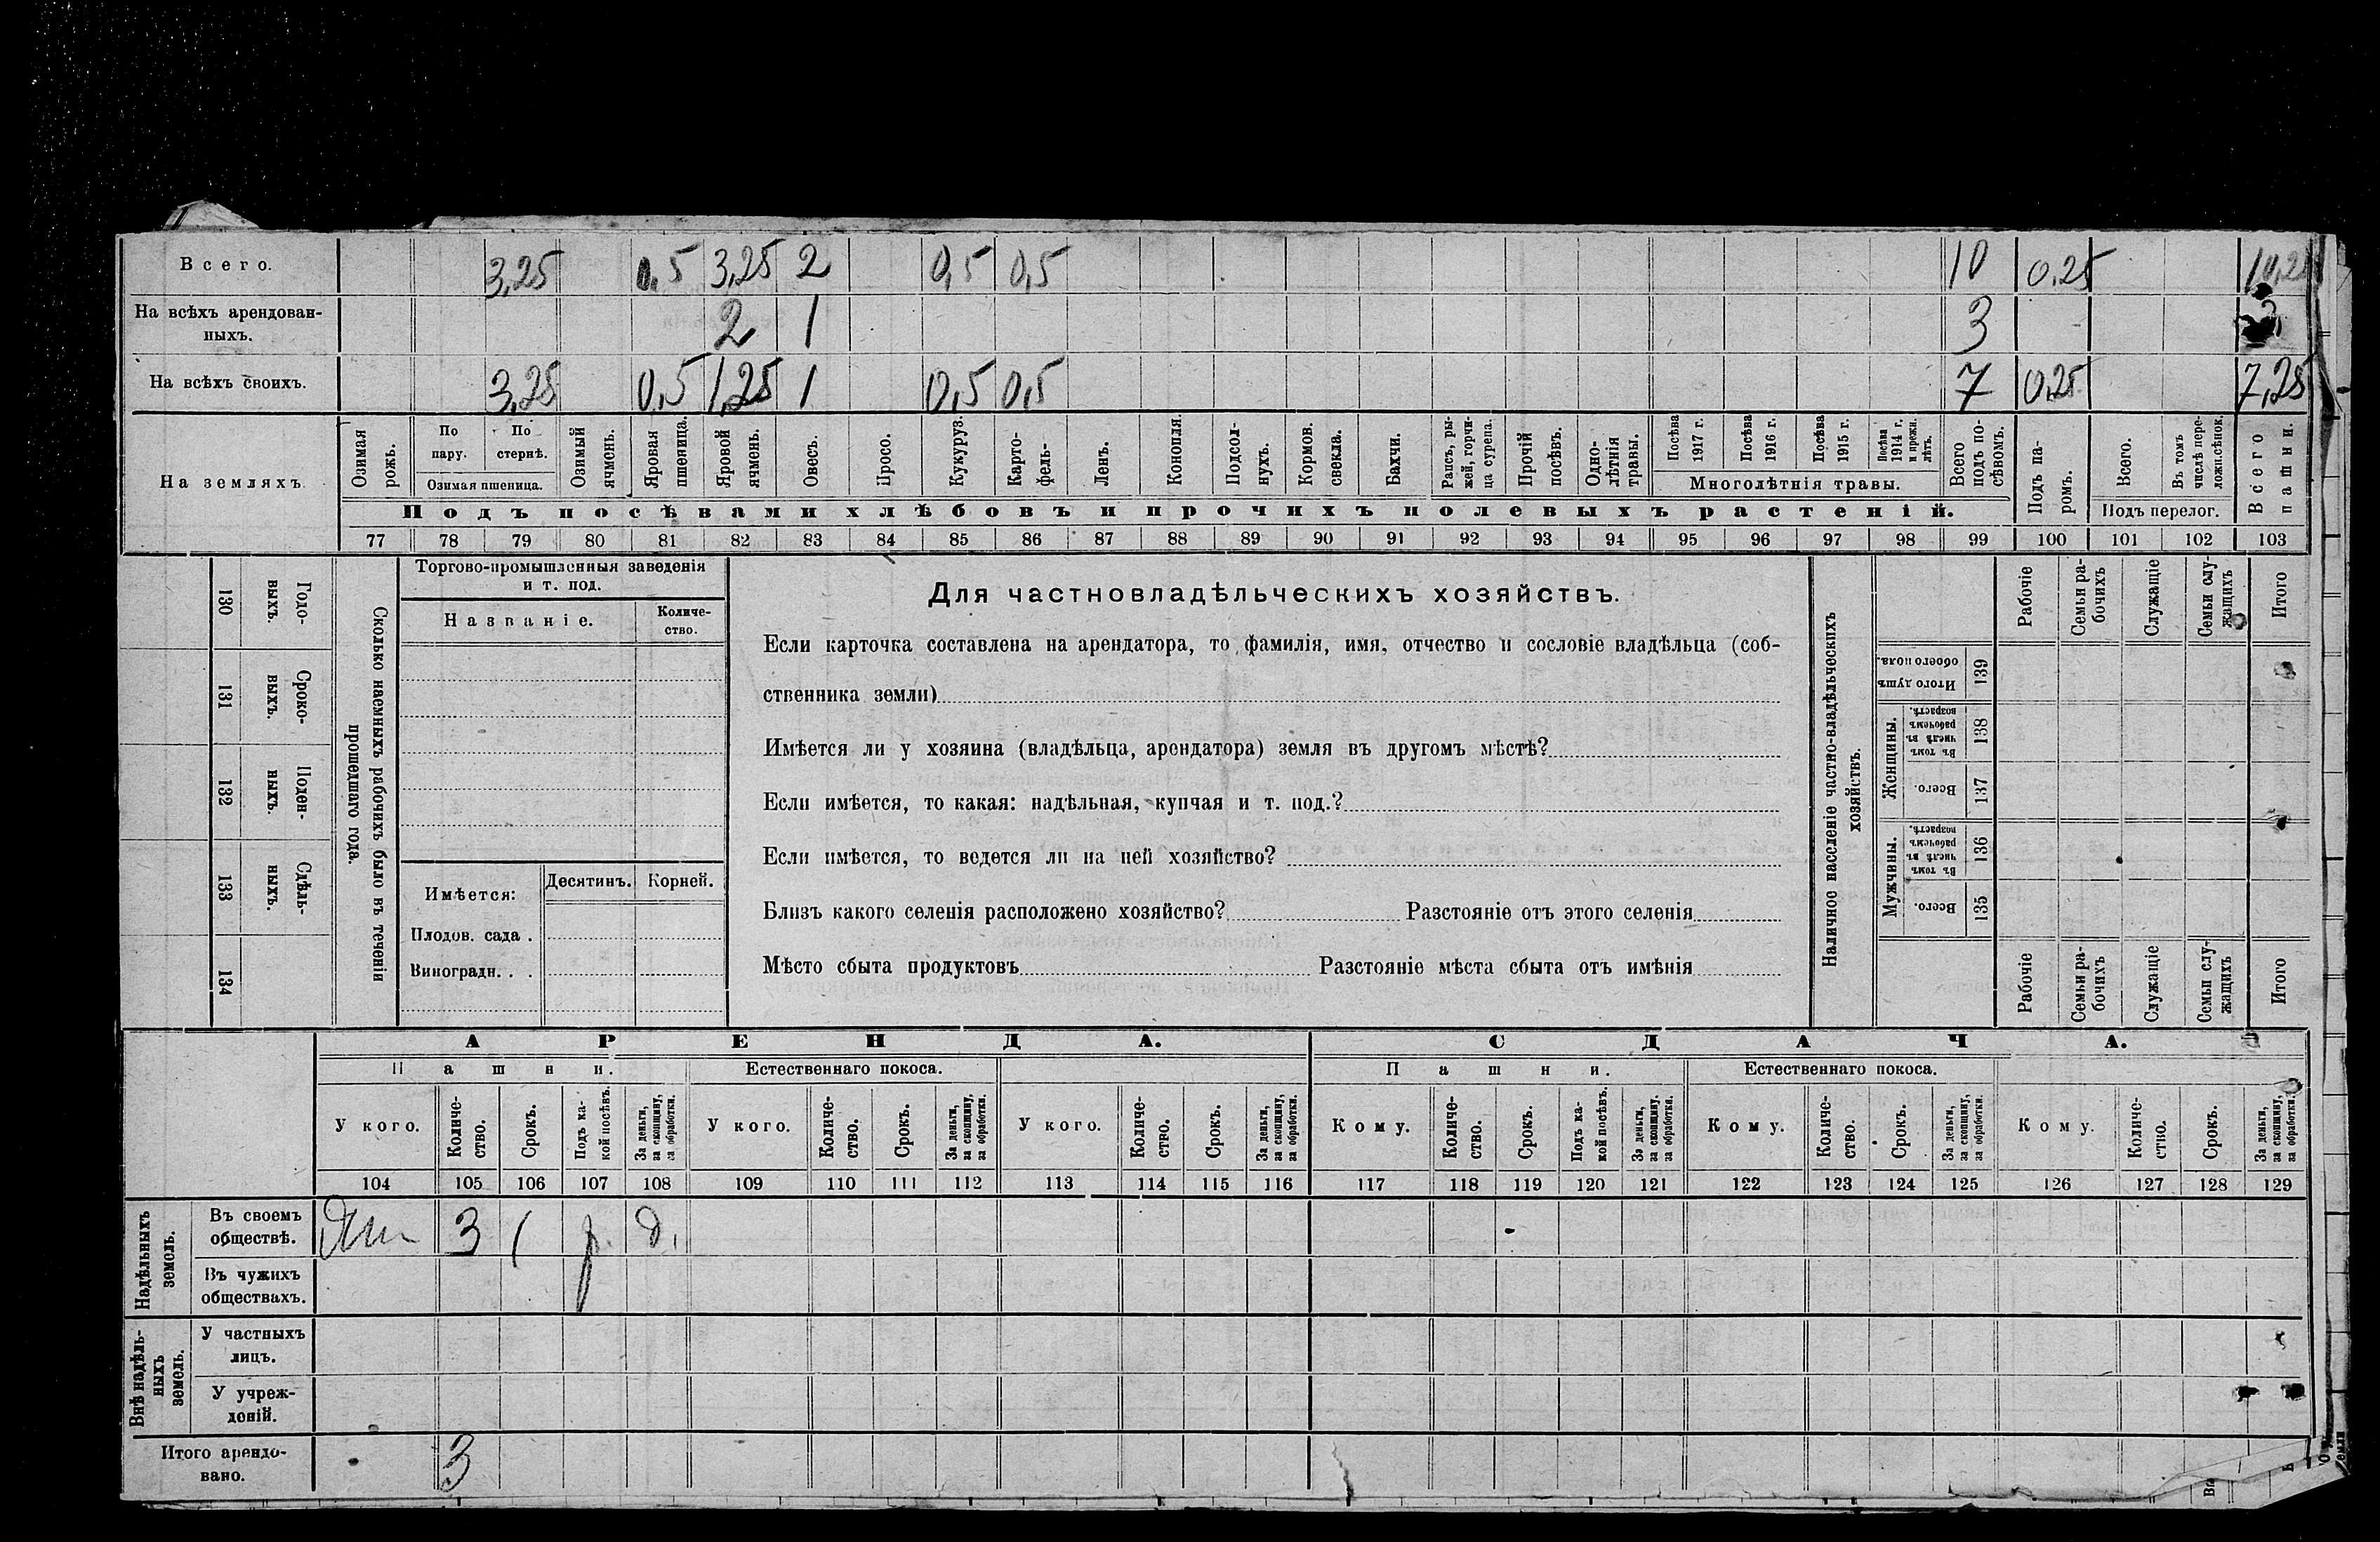 Всего. 3,25 0,5 3,25 2 0,5 0,5 10 0,25
На всѣхъ арендован-
ныхъ. 2 1 3
На всѣхъ своихъ. 3,25 0,5 1,25 1 0,5 0,5 7 0,25 7,25
На земляхъ
Озимая рожь.
По пару.
По стернѣ.
Озимая пшеница.
Озимый ячмень.
Яровая пшеница.
Яровой ячмень.
Овесъ.
Просо.
Кукуруз.
Карто-
фель-
Ленъ.
Конопля.
Подсол-
нухъ.
Кормов.
свекла.
Бахчи.
Рапсъ, ры-
жей, горчи-
ца сурепа.
Прочій
посѣвъ.
Одно-
лѣтнія
травы.
Посѣва 1917 г.
Посѣва 1916 г.
Посѣва 1915 г.
Посѣва 1914 г. и прежн. лѣтъ.
Многолѣтнія травы.
Всего
подъ по-
сѣвомъ.
Подъ па-
ромъ.
Всего.
Въ томъ
числѣ пере-
ложн.сѣнок.
Подъ перелог.
Всего
пашни.
Подъ посѣвами хлѣбовъ и прочихъ полевыхъ растеній.
77 78 79 80 81 82 83 84 85 86 87 88 89 90 91 92 93 94 95 96 97 98 99 100 101 102 103
130 Годо-
выхъ.
131 Сроко-
выхъ.
132 Поден-
ныхъ.
133 Сдѣль-
ныхъ.
134
Сколько наемныхъ рабочихъ было въ теченіи
прошедшаго года.
Торгово-промышленныя заведенія
и т. под.
Названіе. Количе-
ство.
Имѣется: Десятинъ. Корней.
Плодов. сада .
Виноградн. . .
Для частновладѣльческихъ хозяйствъ.
Если карточка составлена на арендатора, то фамилія, имя, отчество и сословіе владѣльца (соб-
ственника земли)
Имѣется ли у хозяина (владѣльца, арендатора) земля въ другомъ мѣстѣ?
Если имѣется, то какая: надѣльная, купчая и т. под.?
Если имѣется, то ведется ли на ней хозяйство?
Близъ какого селенія расположено хозяйство? Разстояніе отъ этого селенія
Мѣсто сбыта продуктовъ Разстояніе мѣста сбыта отъ имѣнія
Наличное населеніе частно-владѣльческихъ
хозяйствъ.
Рабочіе
Семьи ра-
бочихъ
Служащіе
Семьи слу-
жащихъ
Итого
Итого душъ
обоего пола.
139
Женщины.
Въ томъ
числѣ въ
рабочемъ
возрастѣ.
138
Всего.
137
Мужчины.
Въ томъ
числѣ въ
рабочемъ
возрастѣ.
136
Всего.
135
Рабочіе
Семьи ра-
бочихъ
Служащіе
Семьи слу-
жащихъ
Итого
АРЕНДА. СДАЧА.
Пашни. Естественнаго покоса. Пашни. Естественнаго покоса.
У кого.
Количе-
ство.
Срокъ.
Подъ ка-
кой посѣвъ.
За деньги,
за скопщину,
за обработки.
У кого.
Количе-
ство.
Срокъ.
За деньги,
за скопщину,
за обработки.
У кого.
Количе-
ство.
Срокъ.
За деньги,
за скопщину,
за обработки.
Кому.
Количе-
ство.
Срокъ.
Подъ ка-
кой посѣвъ.
За деньги,
за скопщину.
за обработки.
Кому.
Количе-
ство.
Срокъ.
За деньги,
за скопщину,
за обработки.
Кому.
Количе-
ство.
Срокъ.
За деньги,
за скопщину,
за обработки.
104 105 106 107 108 109 110 111 112 113 114 115 116 117 118 119 120 121 122 123 124 125 126 127 128 129
Надѣльныхъ
земель.
Въ своемъ
обществѣ. 3 д.
Въ чужихъ
обществахъ.
Внѣ надѣль-
ныхъ
земель.
У частныхъ
лицъ.
У учреж-
деній.
Итого арендо-
вано. 3